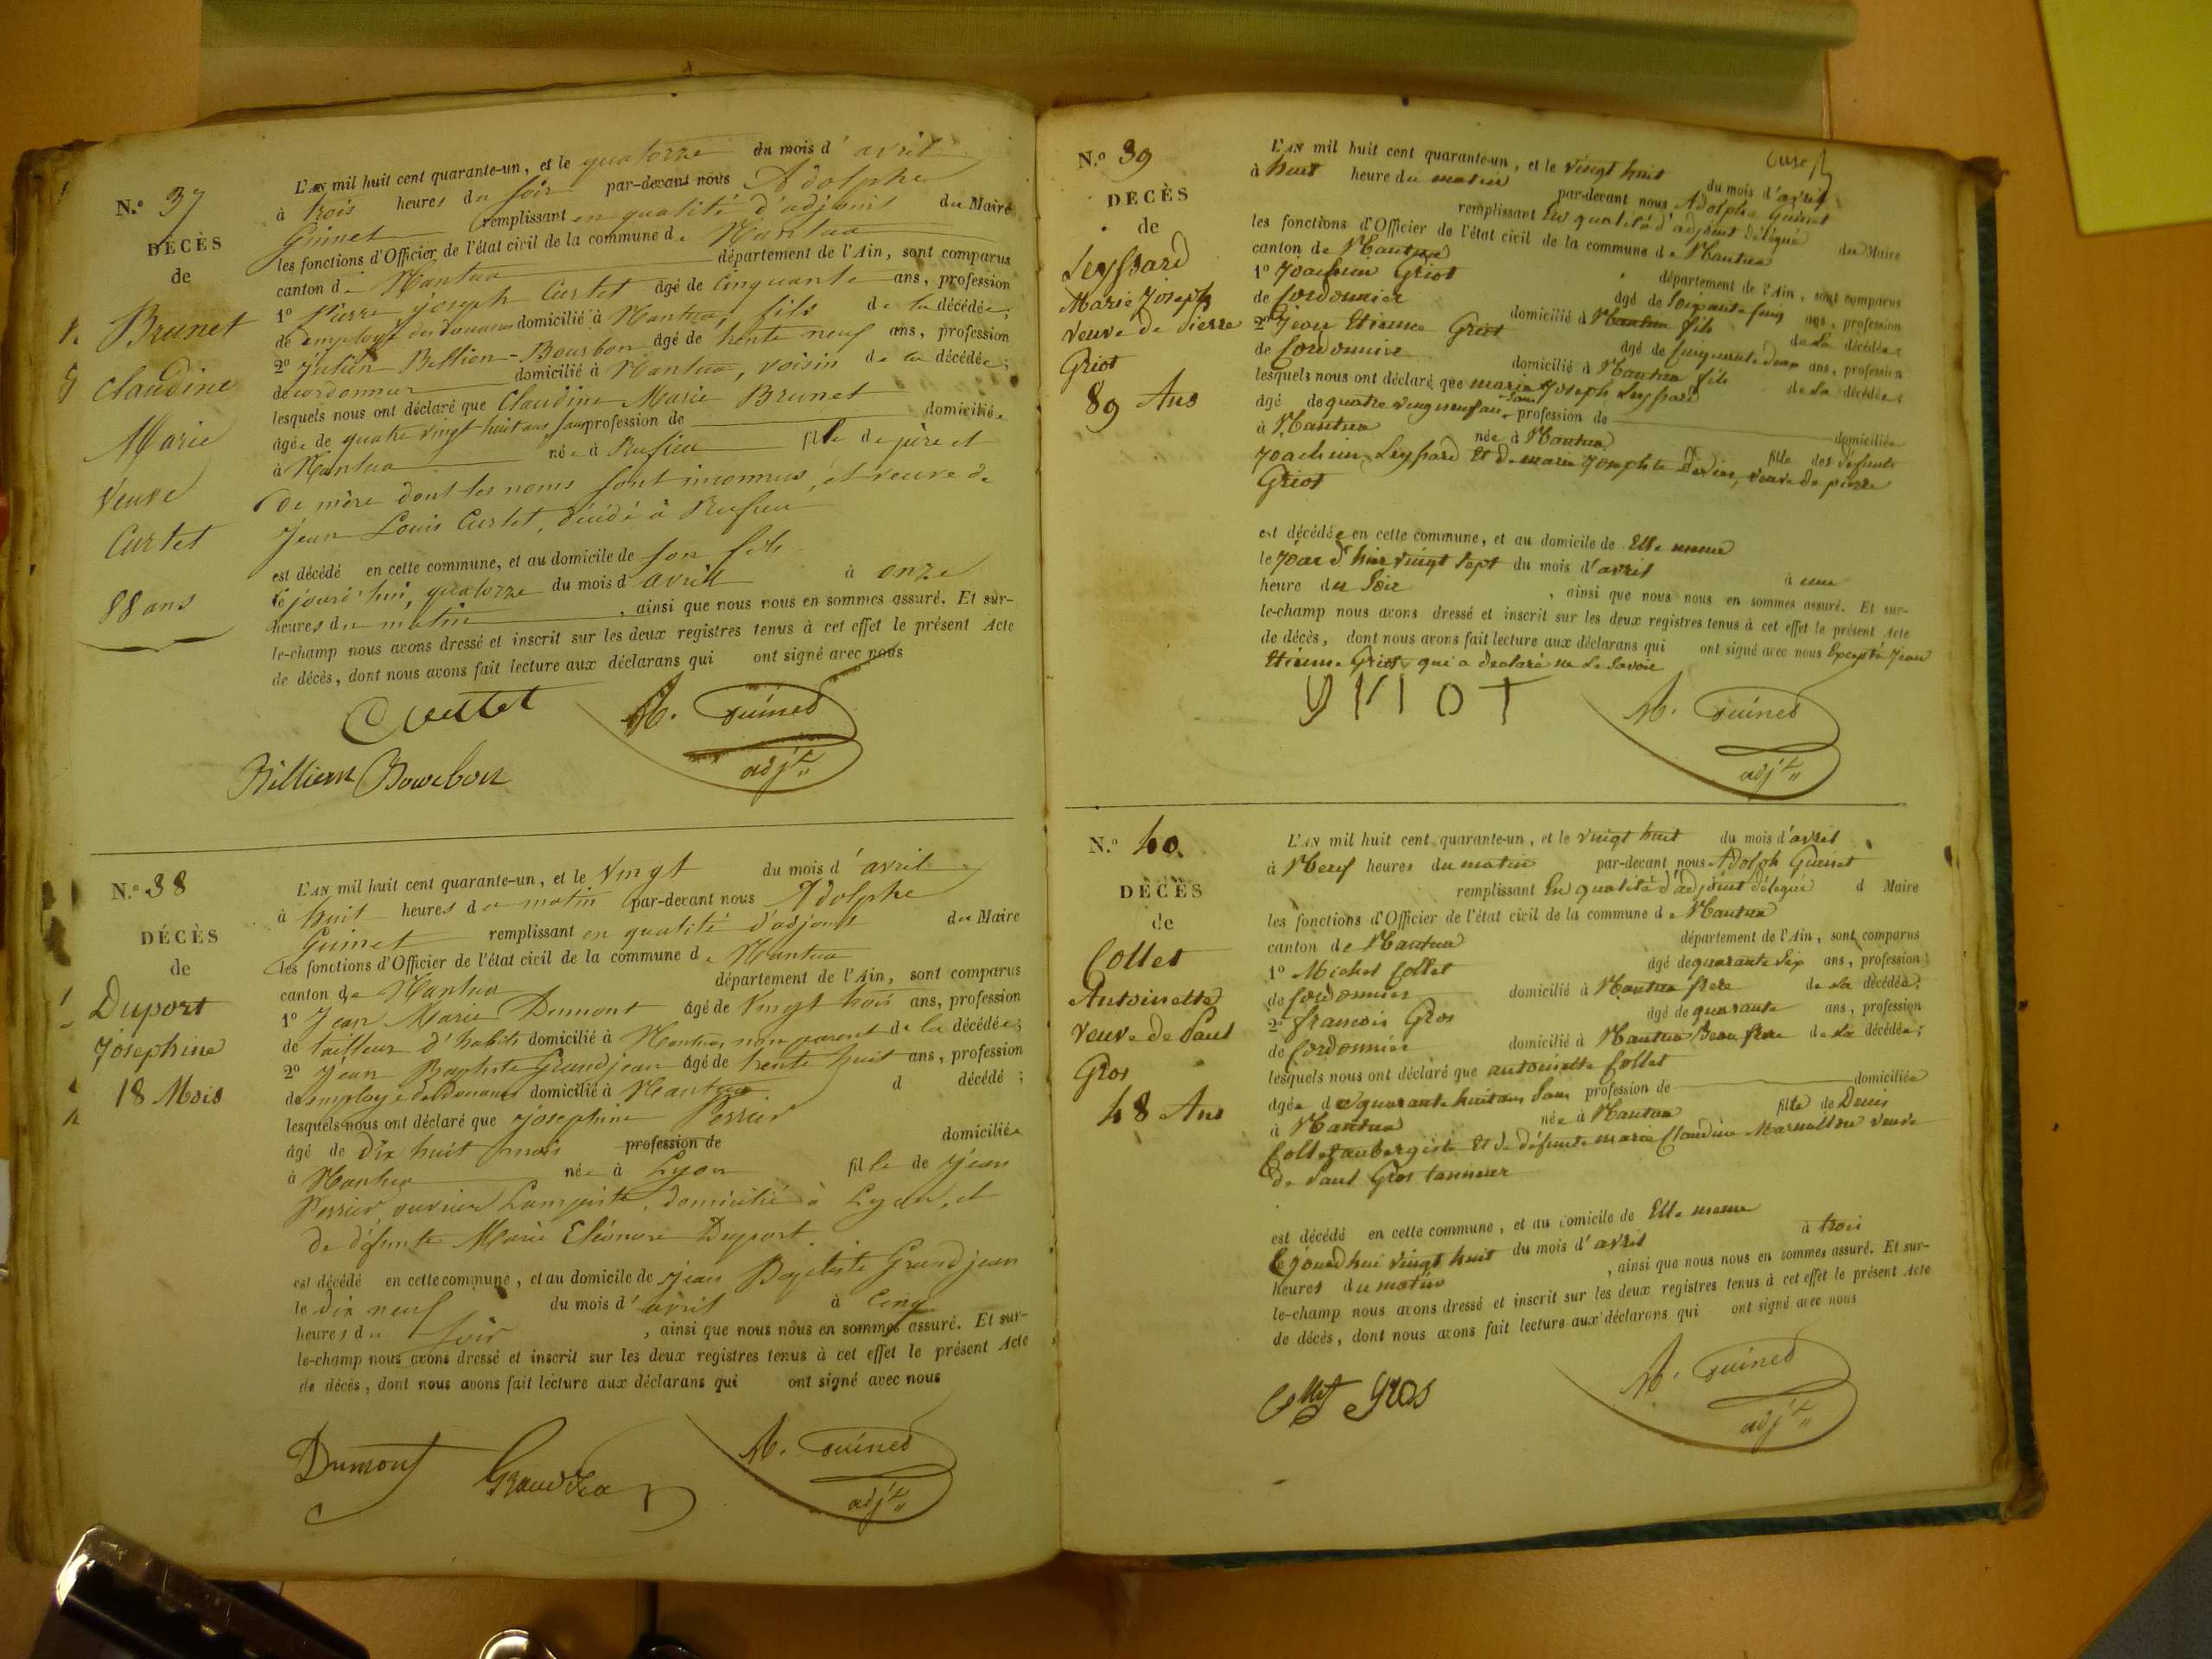 N.º 37
DÉCÈS
de
Brunet
Claudine
Marie
Veuve
Curtet
88 ans
L'AN mil huit cent quarante-un, et le quatorze du mois d'avril
à trois heures du soir par-devant nous Adolphe
Guinet remplissant en qualité d'adjoint du Maire
les fonctions d'Officier de l'état civil de la commune de Nantua
canton de Nantua département de l'Ain, sont comparus
1º Pierre joseph Curtet âgé de Cinquante ans, profession
de employé des douanes domicilié à Nantua, fils de la décédée;
2º Julien Billion-Bourbon âgé de trente neuf ans, profession
de cordonnier domicilié à Nantua, voisin de la décédée;
lesquels nous ont déclaré que Claudine Marie Brunet
âgée de quatre vingt huit ans sans profession de domiciliée
à Nantua née à Rufieu fille de père et
de mère dont les noms sont inconnus, et veuve de
Jean Louis Curtet, décédé à Rufieu
est décédé en cette commune, et au domicile de son fils
le jourd'hui, quatorze du mois d'avril à onze
heures du matin, ainsi que nous nous en sommes assuré. Et sur-
le-champ nous avons dressé et inscrit sur les deux registres tenus à cet effet le présent Acte
de décès, dont nous avons fait lecture aux déclarans qui ont signé avec nous
Curtet
A. Guinet
adjt
Billion Bourbon
N.º 38
DÉCÈS
de
Duport
Joséphine
18 Mois
L'AN mil huit cent quarante-un, et le vingt du mois d'avril
à huit heures du matin par-devant nous Adolphe
Guinet remplissant en qualité d'adjoint du Maire
les fonctions d'Officier de l'état civil de la commune de Nantua
canton de Nantua département de l'Ain, sont comparus
1º Jean Marie Dumont âgé de vingt trois ans, profession
de tailleur d'habits domicilié à Nantua, non parent de la décédée;
2º Jean Baptiste Grandjean âgé de trente huit ans, profession
de employé des Douanes domicilié à Nantua d décédé ;
lesquels nous ont déclaré que josephine Perrier
âgé de dix huit mois profession de domiciliée
à Nantua née à Lyon fille de Jean
Perrier, ouvrier Lampiste, domicilié à Lyon, et
de défunte Marie Eléonore Duport
est décédé en cette commune, et au domicile de jean Baptiste Grandjean
le dix neuf du mois d'avril à Cinq
heures du soir, ainsi que nous nous en sommes assuré. Et sur-
le-champ nous avons dressé et inscrit sur les deux registres tenus à cet effet le présent Acte
de décès, dont nous avons fait lecture aux déclarans qui ont signé avec nous
Dumont
A. Guinet
adjt
N.º 39
DÉCÈS
de
Leyssard
Marie Joseph
veuve de Pierre
Griot
89 Ans
L'AN mil huit cent quarante-un, et le vingt huit du mois d'avril
à huit heure du matin par-devant nous Adolphe Guinet
remplissant En qualité d'adjoint délégué du Maire
les fonctions d'Officier de l'état civil de la commune de Nantua
canton de Nantua département de l'Ain, sont comparus
1º Joachim Griot âgé de ans, profession
de Cordonnier domicilié à Nantua fils de la décédée;
2º Jean Etienne Griot âgé de Cinquante deux ans, profession
de Cordonnier domicilié à Nantua fils de la décédée;
lesquels nous ont déclaré que marie Joseph Leyssard
âgé de quatre vingt neuf ans sans profession de domiciliée
à Nantua née à Nantua fille des défunts
Joachim Leyssard Et de marie Josephte, veuve de pierre
Griot
est décédée en cette commune, et au domicile de Elle meme
le Jour d'hier vingt Sept du mois d'avril à une
heure du Soir, ainsi que nous nous en sommes assuré. Et sur-
le-champ nous avons dressé et inscrit sur les deux registres tenus à cet effet le présent Acte
de décès, dont nous avons fait lecture aux déclarans qui ont signé avec nous Excepté Jean
Etienne Griot qui a declaré ne Le Savoir
GRIOT
A. Guinet
adjt
N.º 40
DÉCÈS
de
Collet
Antoinette
veuve de Paul
Gros
48 Ans
L'AN mil huit cent quarante-un, et le vingt huit du mois d'avril
à Neuf heures du matin par-devant nous Adolph Guinet
remplissant En qualité d'adjoint délégué d Maire
les fonctions d'Officier de l'état civil de la commune de Nantua
canton de Nantua département de l'Ain, sont comparus
1º Michel Collet âgé de quarante Six ans, profession
de Cordonnier domicilié à Nantua frere de la décédée;
2º francois Gros âgé de quarante ans, profession
de Cordonnier domicilié à Nantua Beau frere de la décédée;
lesquels nous ont déclaré que antoinette Collet
âgée de quarante huit ans Sans profession de domiciliée
à Nantua née à Nantua fille de Denis
Collet aubergiste Et de défunte marie Claudine veuve
de Paul Gros tanneur
est décédé en cette commune, et au domicile de Elle meme
Cejourdhui vingt huit du mois d'avril à trois
heures du matin, ainsi que nous nous en sommes assuré. Et sur-
le-champ nous avons dressé et inscrit sur les deux registres tenus à cet effet le présent Acte
de décès, dont nous avons fait lecture aux déclarans qui ont signé avec nous
Collet Gros
A. Guinet
adjt